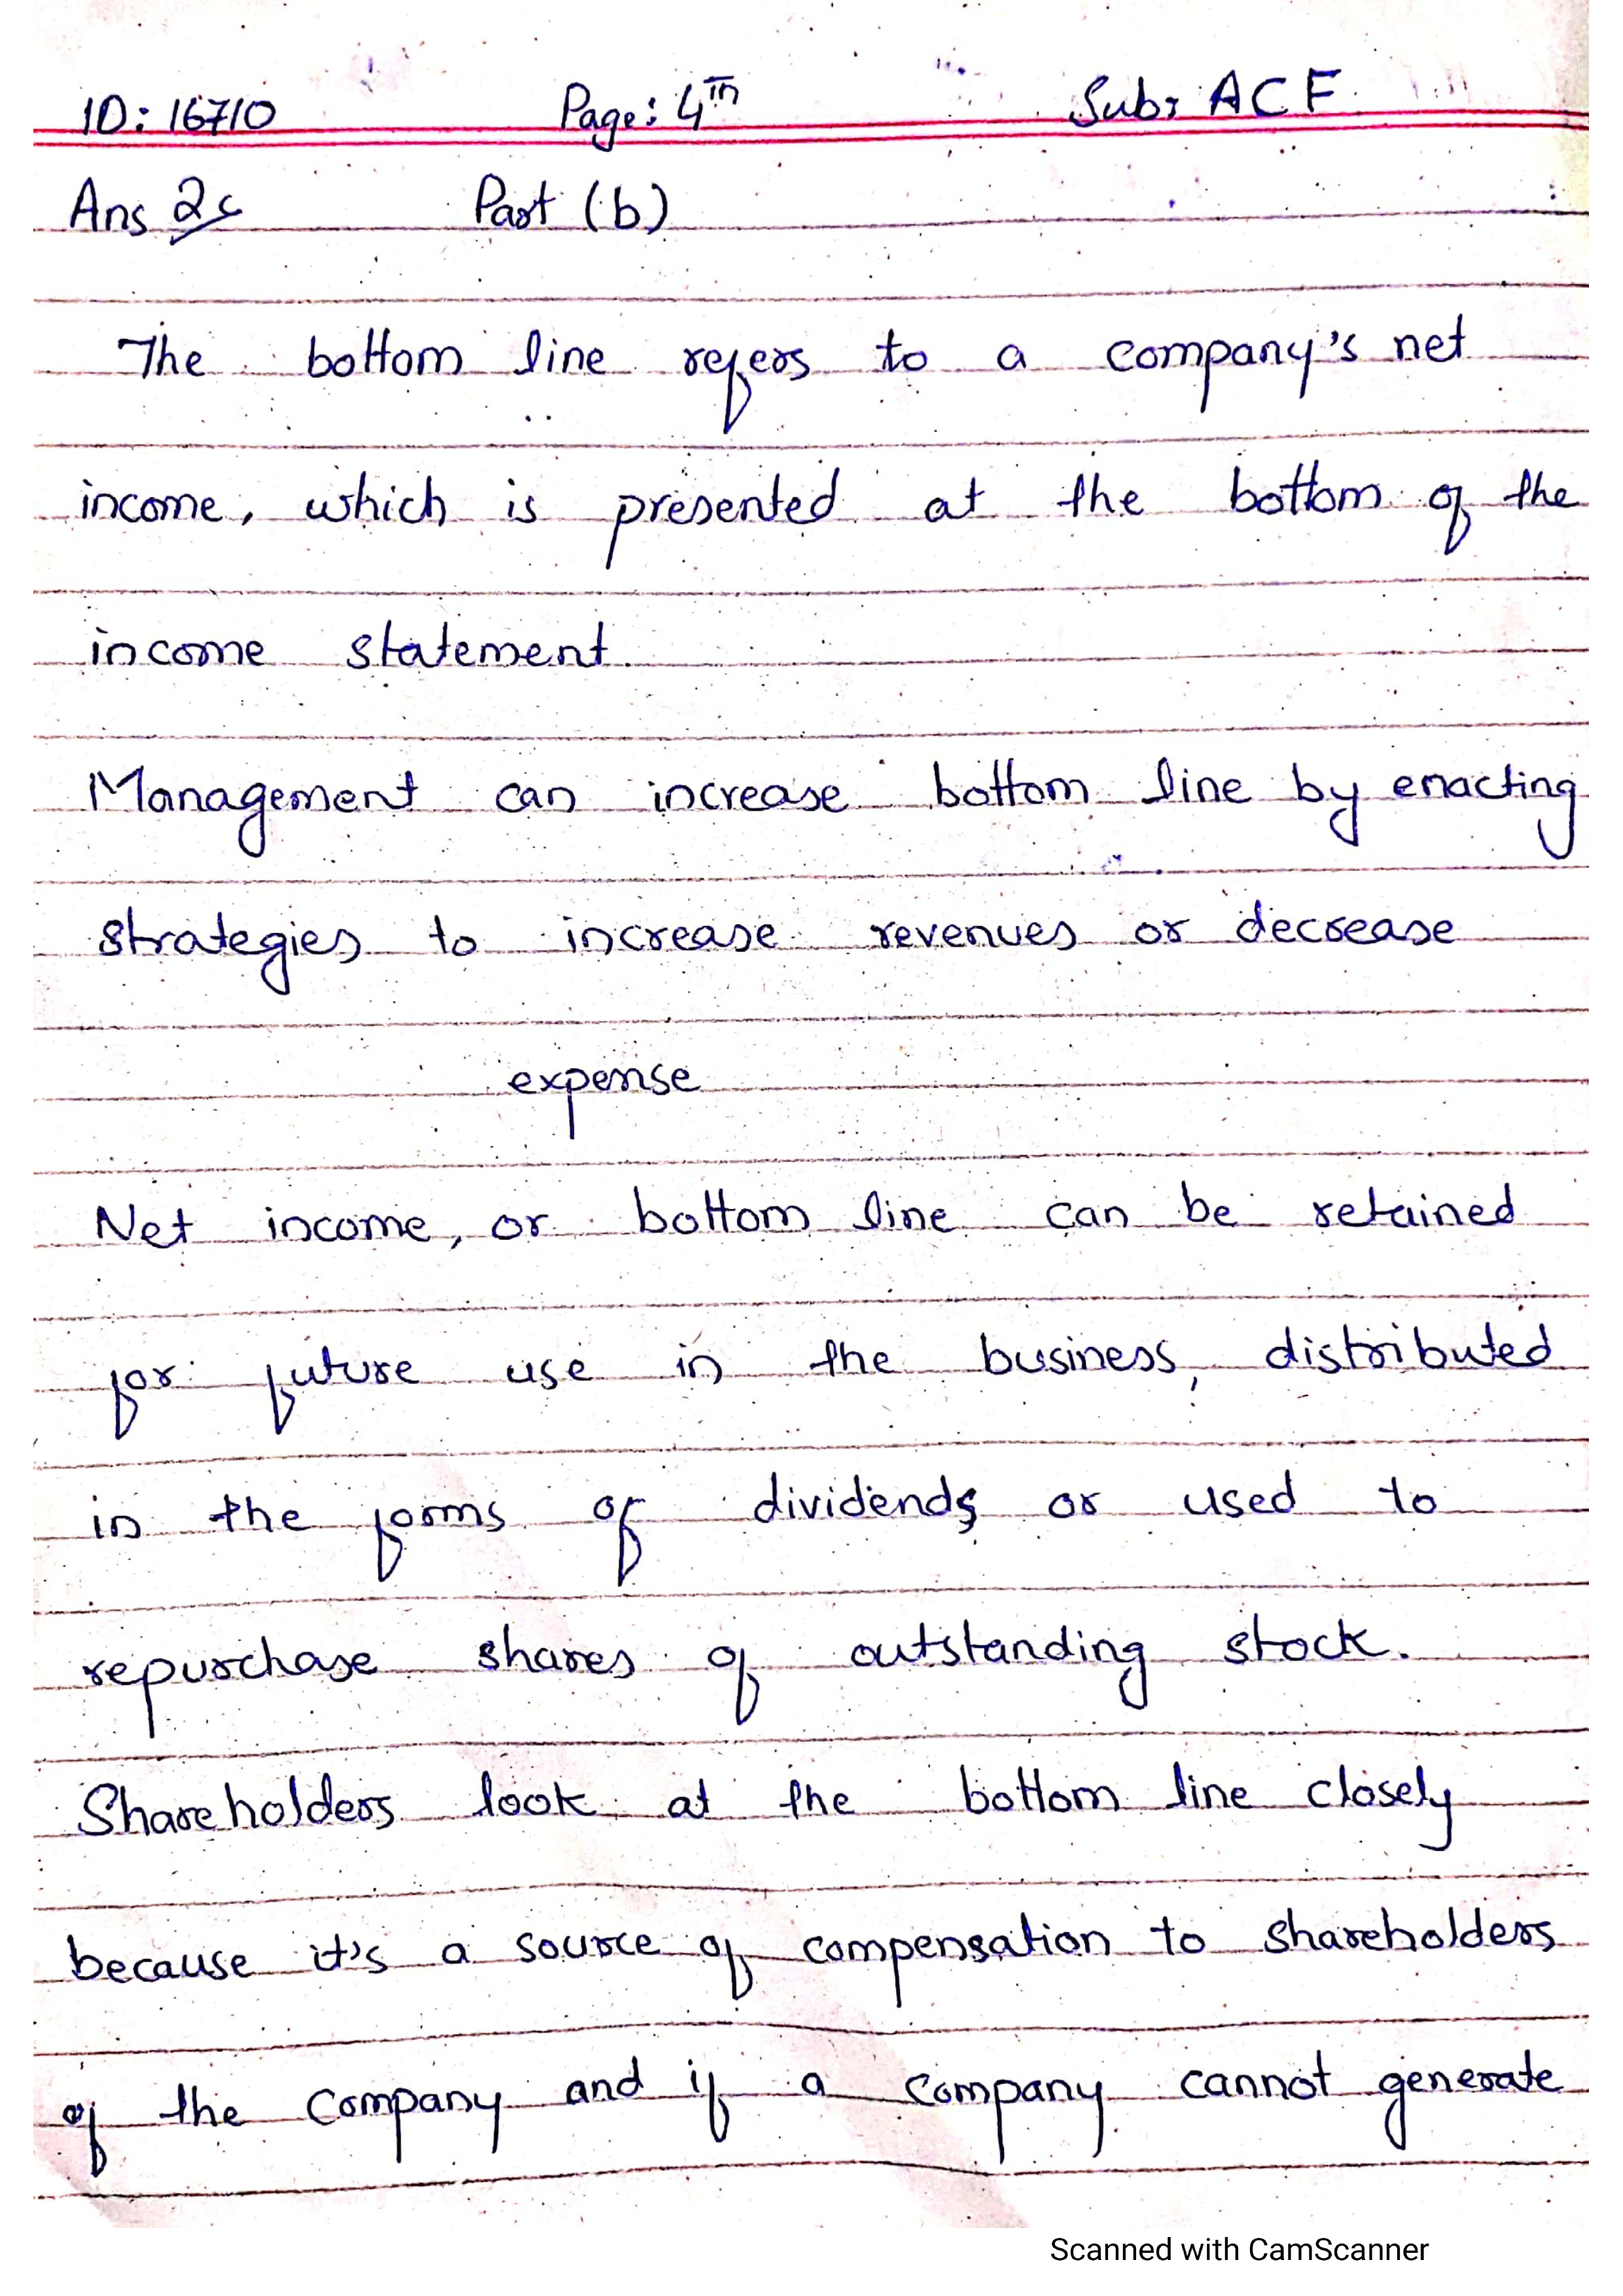 ID: 16710 Page: 4th Sub: ACF
Ans 2: Part (b)
The bottom line refers to a company's net
income, which is presented at the bottom of the
income statement.
Management can increase bottom line by enacting
strategies to increase revenues or decrease
expense
Net income, or bottom line can be retained
for future use in the business, distributed
in the forms of dividends or used to
repurchase shares of outstanding stock.
Shareholders look at the bottom line closely
because it's a source of compensation to shareholders
of the company and if a company cannot generate
Scanned with CamScanner